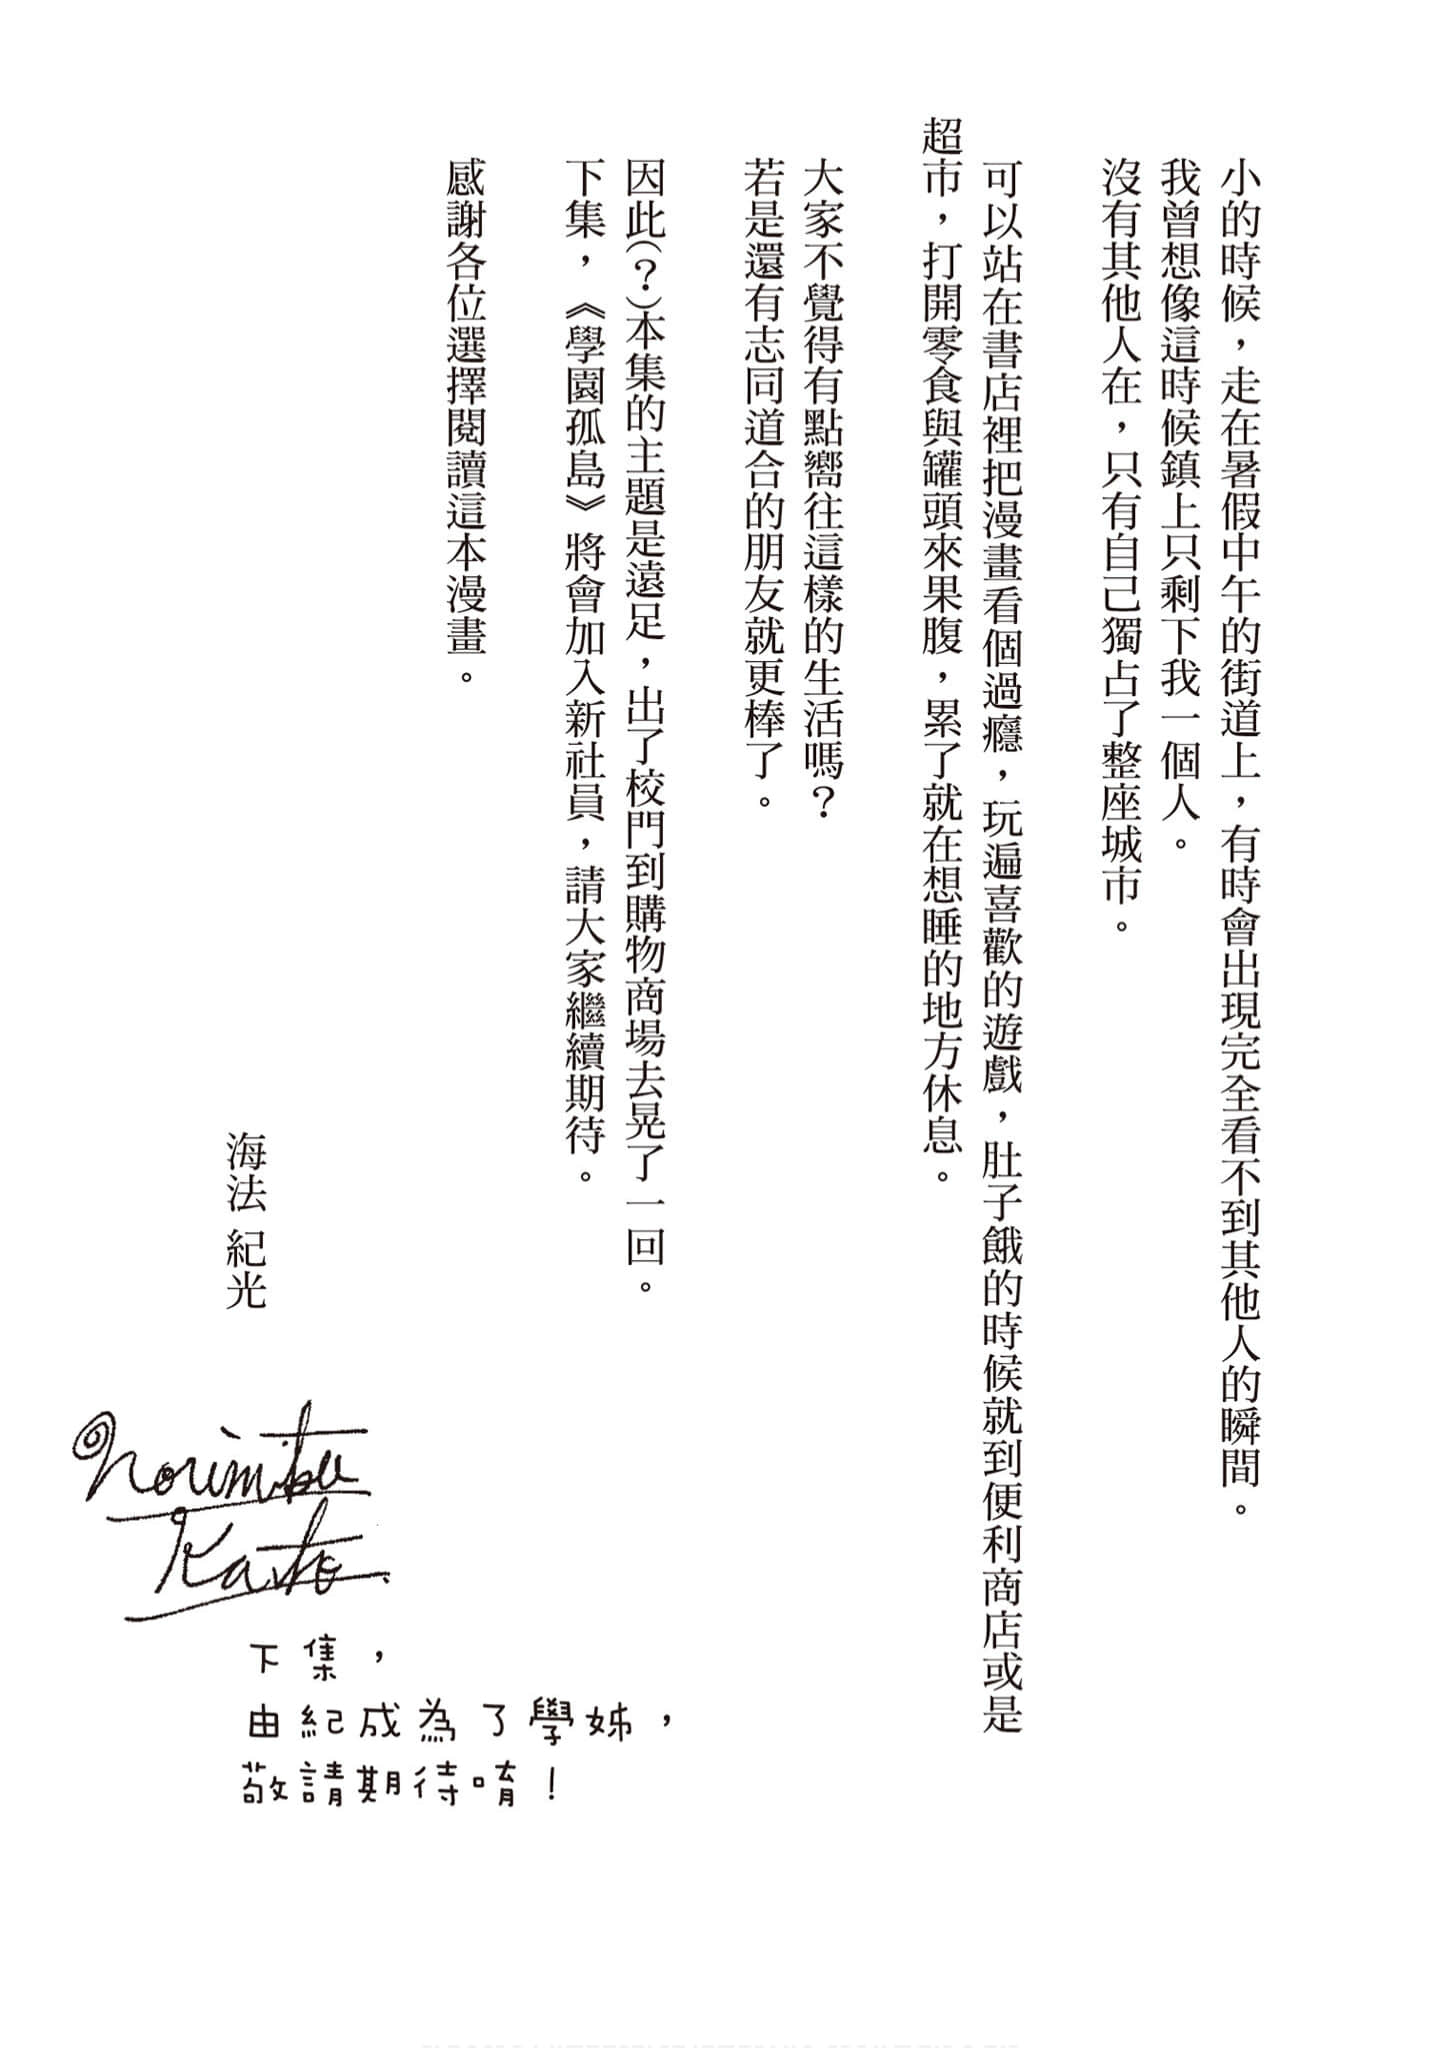 小的時候，走在暑假中午的街道上，有時會出現完全看不到其他人的瞬間。
我曾想像這時候鎮上只剩下我一個人。
沒有其他人在，只有自己獨占了整座城市。
可以站在書店裡把漫畫看個過癮，玩遍喜歡的遊戲，肚子餓的時候就到便利商店或是
超市，打開零食與罐頭來果腹，累了就在想睡的地方休息。
大家不覺得有點嚮往這樣的生活嗎？
若是還有志同道合的朋友就更棒了。
因此（？）本集的主題是遠足，出了校門到購物商場去晃了一回。
下集，《學園孤島》將會加入新社員，請大家繼續期待。
感謝各位選擇閱讀這本漫畫。
海法 紀光
Norimitsu
Kaiho
下集，
由紀成為了學姊，
敬請期待唷！